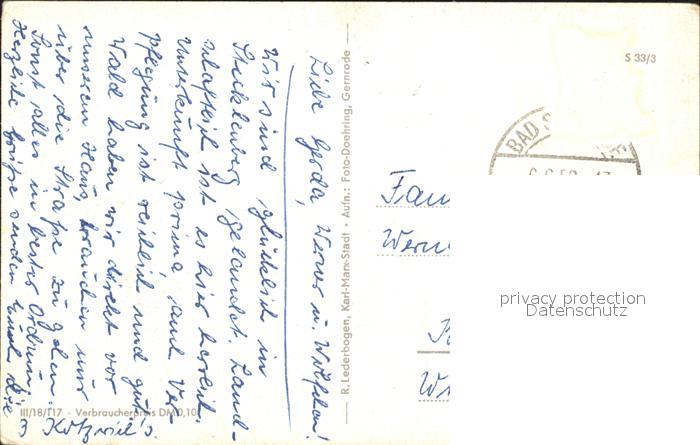 Liebe Gerda, Werner u. Wölfchen!
Wir sind glücklich in
Stecklenberg gelandet. Land-
schaftlich ist es hier herrlich.
Unterkunft prima auch Ver-
pflegung ist reichlich und gut.
Wald haben wir direkt vor
unserem Haus, brauchen nur
über die Straße zu gehen.
Sonst alles in bester Ordnung
Herzliche Grüße senden Euch die
3
R. Lederbogen, Karl-Marx-Stadt · Aufn.: Foto-Doehring, Gernrode
III/18/117 · Verbraucherpreis DM 0,10
S 33/3
BAD
Fam
Wern
privacy protection
Datenschutz